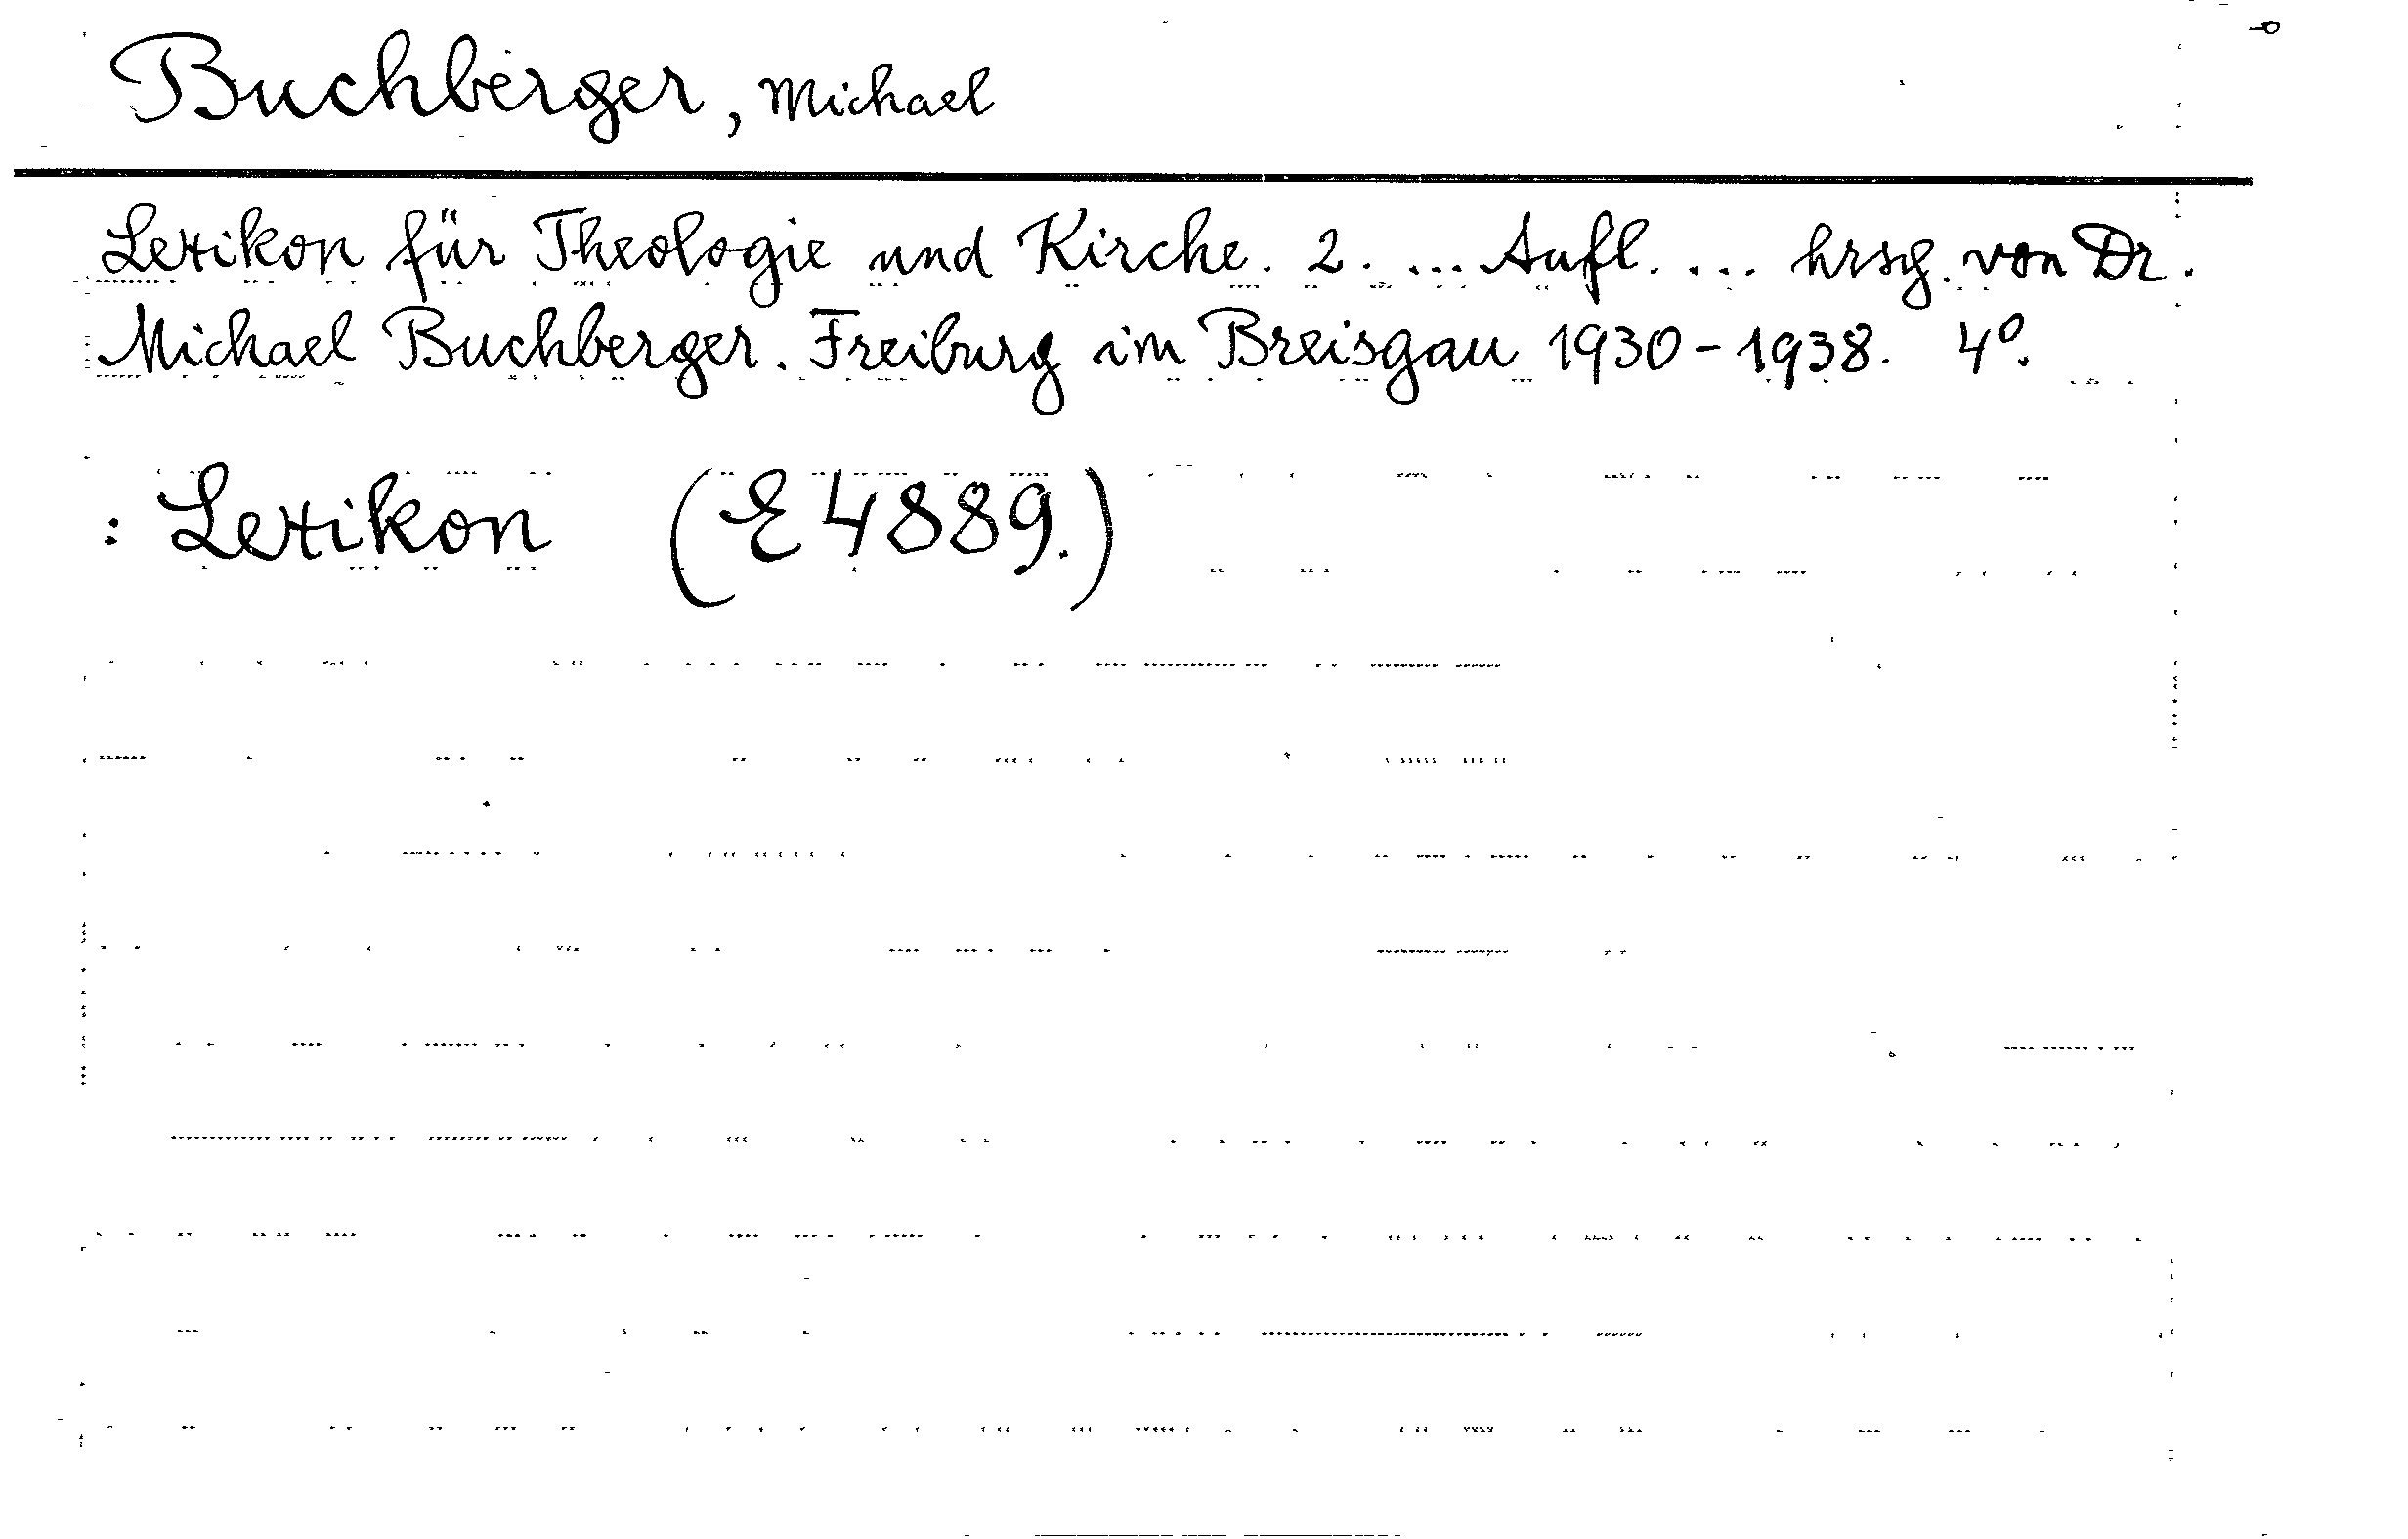 Buchberger, Michael
Lexikon für Theologie und Kirche. 2. ... Aufl. ... hrsg. von Dr.
Michael Buchberger. Freiburg im Breisgau 1930-1938. 4º.
: Lexikon (E 4889.)